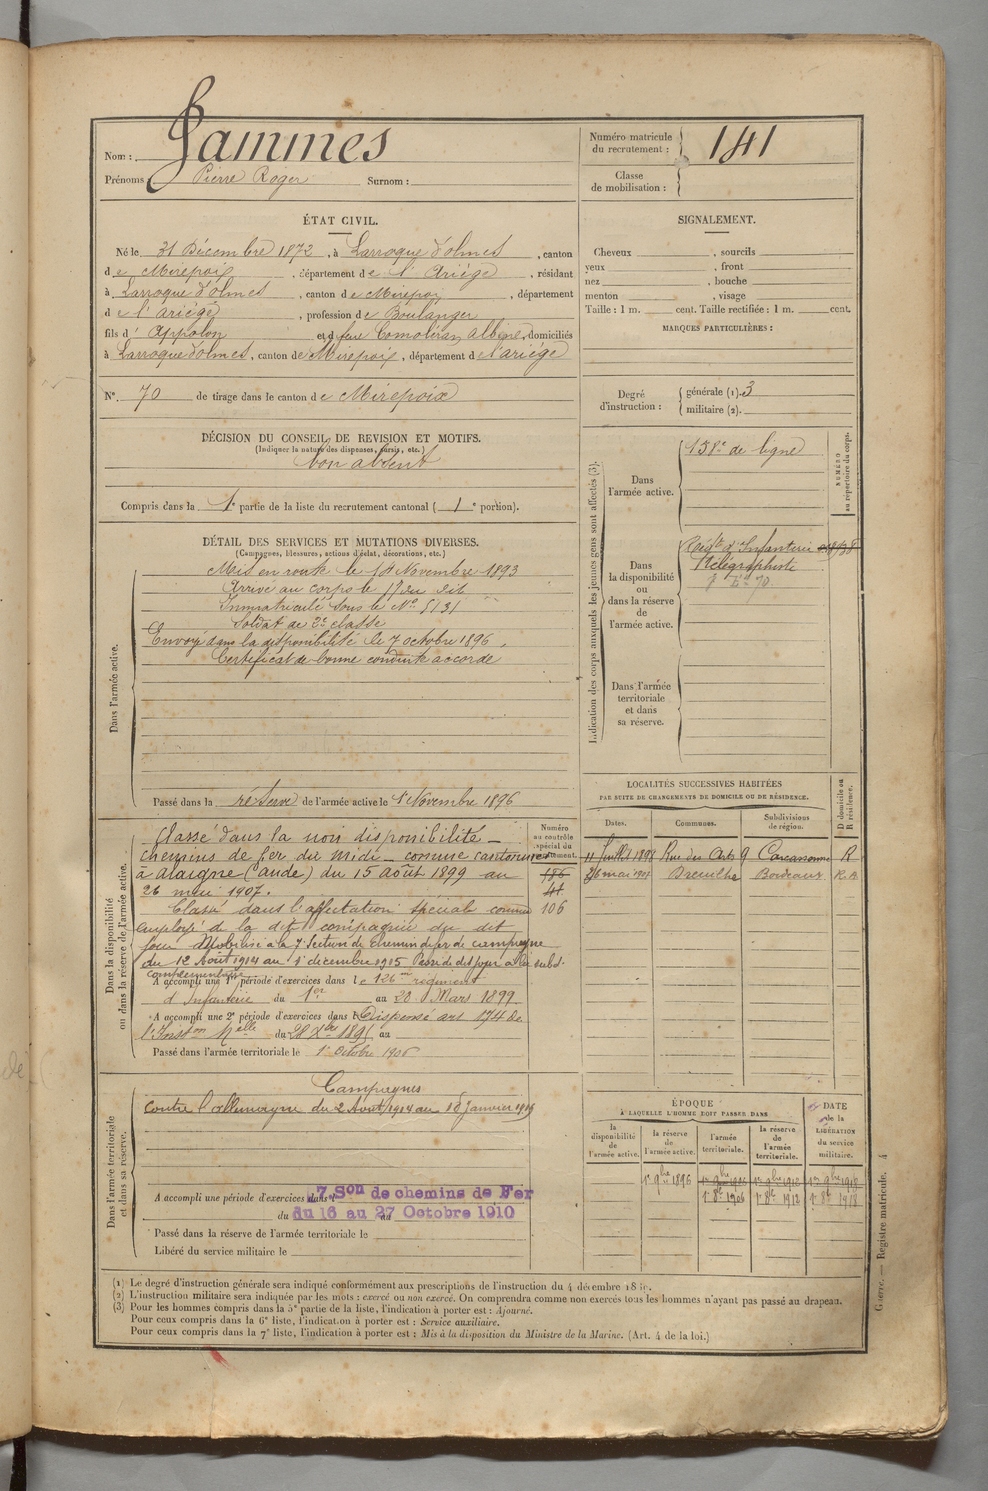 Nom : Jammes
Prénoms : Pierre Roger Surnom :
Numéro matricule du recrutement : 141
Classe de mobilisation :
ÉTAT CIVIL.
Né le 31 Décembre 1872, à Larroque d'olmes, canton
de Mirepoix, département de l'Ariége, résidant
à Larroque d'olmes, canton de Mirepoix, département
de l'ariége, profession de Boulanger
fils d'Appolon et de feue Comoléran Albine, domiciliés
à Larroque d'olmes, canton de Mirepoix, département de l'ariége
N° 70 de tirage dans le canton de Mirepoix
DÉCISION DU CONSEIL DE REVISION ET MOTIFS.
(Indiquer la nature des dispenses, sursis, etc.)
bon absent
Compris dans la 1e partie de la liste du recrutement cantonal (1e portion).
DÉTAIL DES SERVICES ET MUTATIONS DIVERSES.
(Campagnes, blessures, actions d'éclat, décorations, etc.)
Dans l'armée active.
Mis en route le 16 Novembre 1893
Arrivé au corps le 17 du dit
Immatriculé sous le N° 5131
Soldat de 2e classe
Envoyé dans la disponibilité le 7 octobre 1896.
Certificat de bonne conduite accordé
Passé dans la réserve de l'armée active le 1er Novembre 1896
Dans la disponibilité ou dans la réserve de l'armée active.
Numéro au contrôle spécial du recrutement.
186
41
106
Classé dans la non disponibilité –
chemins de fer du Midi – comme cantonnier
à Alaigne (aude) du 15 août 1899 au
26 mai 1907.
Classé dans l'affectation spéciale comme
employé de la dite compagnie du dit
jour Mobilisé à la 7e Section de Chemin de fer de campagne
du 12 Août 1914 au 1er décembre 1915
complémentaire
A accompli une 1re période d'exercices dans le 126me régiment
d'Infanterie du 1er au 28 Mars 1899
A accompli une 2e période d'exercices dans Dispensé art 174 de
l'Inston Melle du 28 Xbre 1895 au
Passé dans l'armée territoriale le 1er Octobre 1906
Dans l'armée territoriale et dans sa réserve.
Campagnes
Contre l'allemagne du 2 Août 1914 au 18 Janvier 1919
A accompli une période d'exercices dans l 7 Son de chemins de Fer
du 16 au 27 Octobre 1910
Passé dans la réserve de l'armée territoriale le
Libéré du service militaire le
SIGNALEMENT.
Cheveux , sourcils
yeux , front
nez , bouche
menton , visage
Taille : 1 m. cent. Taille rectifiée : 1 m. cent.
MARQUES PARTICULIÈRES :
Degré d'instruction : générale (1). 3
militaire (2).
Indication des corps auxquels les jeunes gens sont affectés (3).
NUMÉRO au répertoire du corps.
Dans l'armée active.
158e de ligne
Dans la disponibilité ou dans la réserve de l'armée active.
Régt d'Infanterie
Télégraphiste
Dans l'armée territoriale et dans sa réserve.
LOCALITÉS SUCCESSIVES HABITÉES
PAR SUITE DE CHANGEMENTS DE DOMICILE OU DE RÉSIDENCE.
Dates. Communes. Subdivisions de région. D domicile ou R résidence.
11 Juillet 1898 Rue des Arts 9 Carcassonne R
26 mai 1907 Dreuilhe Bordeaux
ÉPOQUE
À LAQUELLE L'HOMME DOIT PASSER DANS
la disponibilité de l'armée active. la réserve de l'armée active. l'armée territoriale. la réserve de l'armée territoriale. DATE de la LIBÉRATION du service militaire.
1er 9bre 1896 1er 9bre 1906 1er 9bre 1912 1er 9bre 1918
1er 8bre 1906 1er 8bre 1912 1er 8bre 1918
(1) Le degré d'instruction générale sera indiqué conformément aux prescriptions de l'instruction du 4 décembre
(2) L'instruction militaire sera indiquée par les mots : exercé ou non exercé. On comprendra comme non exercés tous les hommes n'ayant pas passé au drapeau.
(3) Pour les hommes compris dans la 5e partie de la liste, l'indication à porter est : Ajourné.
Pour ceux compris dans la 6e liste, l'indication à porter est : Service auxiliaire.
Pour ceux compris dans la 7e liste, l'indication à porter est : Mis à la disposition du Ministre de la Marine. (Art. 4 de la loi.)
Guerre. — Registre matricule. 4